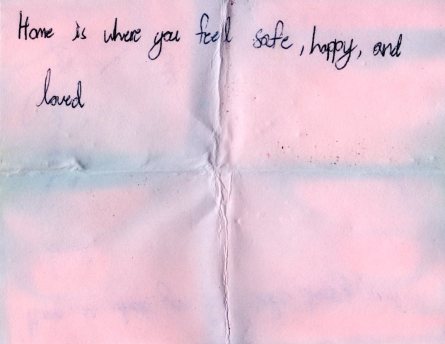 Home is where you feel safe, happy, and
loved